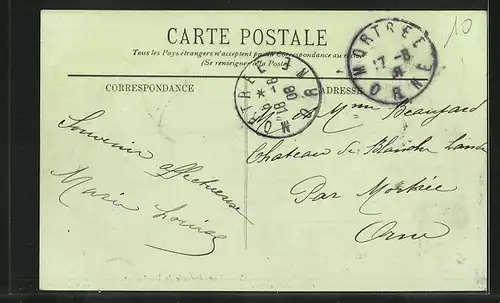 10
CARTE POSTALE
Tous les Pays étrangers n'acceptent pas la Correspondance au recto
(Se renseigner à la Poste)
CORRESPONDANCE
ADRESSE
MORTRÉE
17 -8
ORNE
MORTRÉE
ORNE
M et Mme Beaugard
Chateau de Blanche Lande
Par Mortrée
Orne
Souvenir affectueuse
Marie Louise